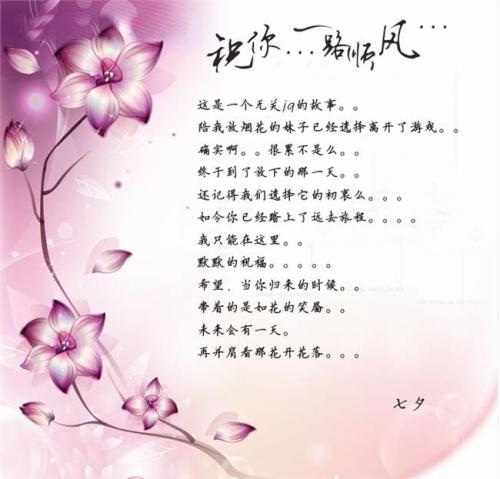 祝你...一路顺风...
这是一个无关jq的故事。。
陪我放烟花的妹子已经选择离开了游戏。。
确实啊。。很累不是么。。
终于到了放下的那一天。。
还记得我们选择它的初衷么。。。
如今你已经踏上了远去旅程。。。。
我只能在这里。。
默默的祝福。。。。。
希望，当你归来的时候。。
带着的是如花的笑靥。。
未来会有一天。
再并肩看那花开花落。。。
七夕